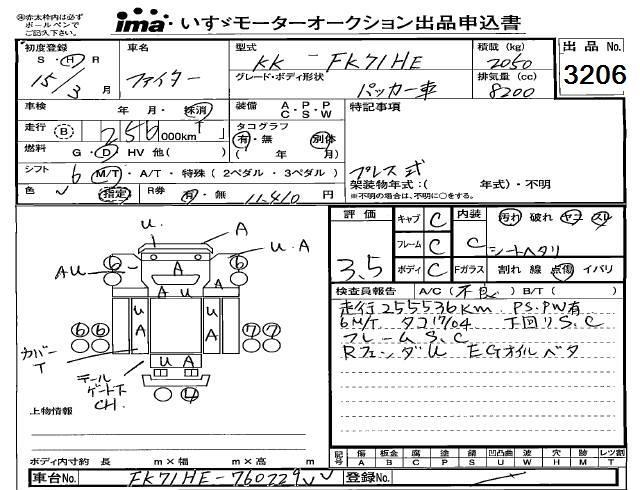 ㊟赤太枠内は必ず
ボールペンで
ご記入下さい。
ima いすゞモーターオークション出品申込書
初度登録 車名 型式 積載 (kg) 出品 No.
S・H R KK - FK71HE 2050 3206
15/3 月 ファイター グレード・ボディ形状 排気量 (cc)
パッカー車 8200
車検 年・月・抹消 装備 A.P.P C.S.W 特記事項
走行 B 256,000km タコグラフ
有・無 別体
燃料 G・D・HV 他( ) ( 年 月)
シフト 6 M/T・A/T・特殊 ( 2ペダル・3ペダル ) プレス式
架装物年式:( 年式)・不明
色 指定 R券 有・無 11,410 円 ※不明の場合は、不明に○をする。
評価 キャブ C 内装 汚れ 破れ ヤニ スリ
フレーム C C シートヘタリ
3.5 ボディ C Fガラス 割れ 線 点傷 イバリ
検査員報告 A/C( 不良 ) B/T( )
走行255536km PS.PW有
6M/T タコ17/04 下回りS.C
フレームS.C
RフェンダU EGオイルベタ
U A
U・A
6 A 6
AU
A U
U A U A
6 6 7 7
カバーT
U A
テール
ゲート下
CH
4
上物情報
ボディ内寸約 長 m×幅 m×高 m
記号 傷 板金 腐 塗 錆 凹凸曲 波 穴 跡 レツ割
A B C P S U W H M T
車台No. FK71HE-760229 登録No.